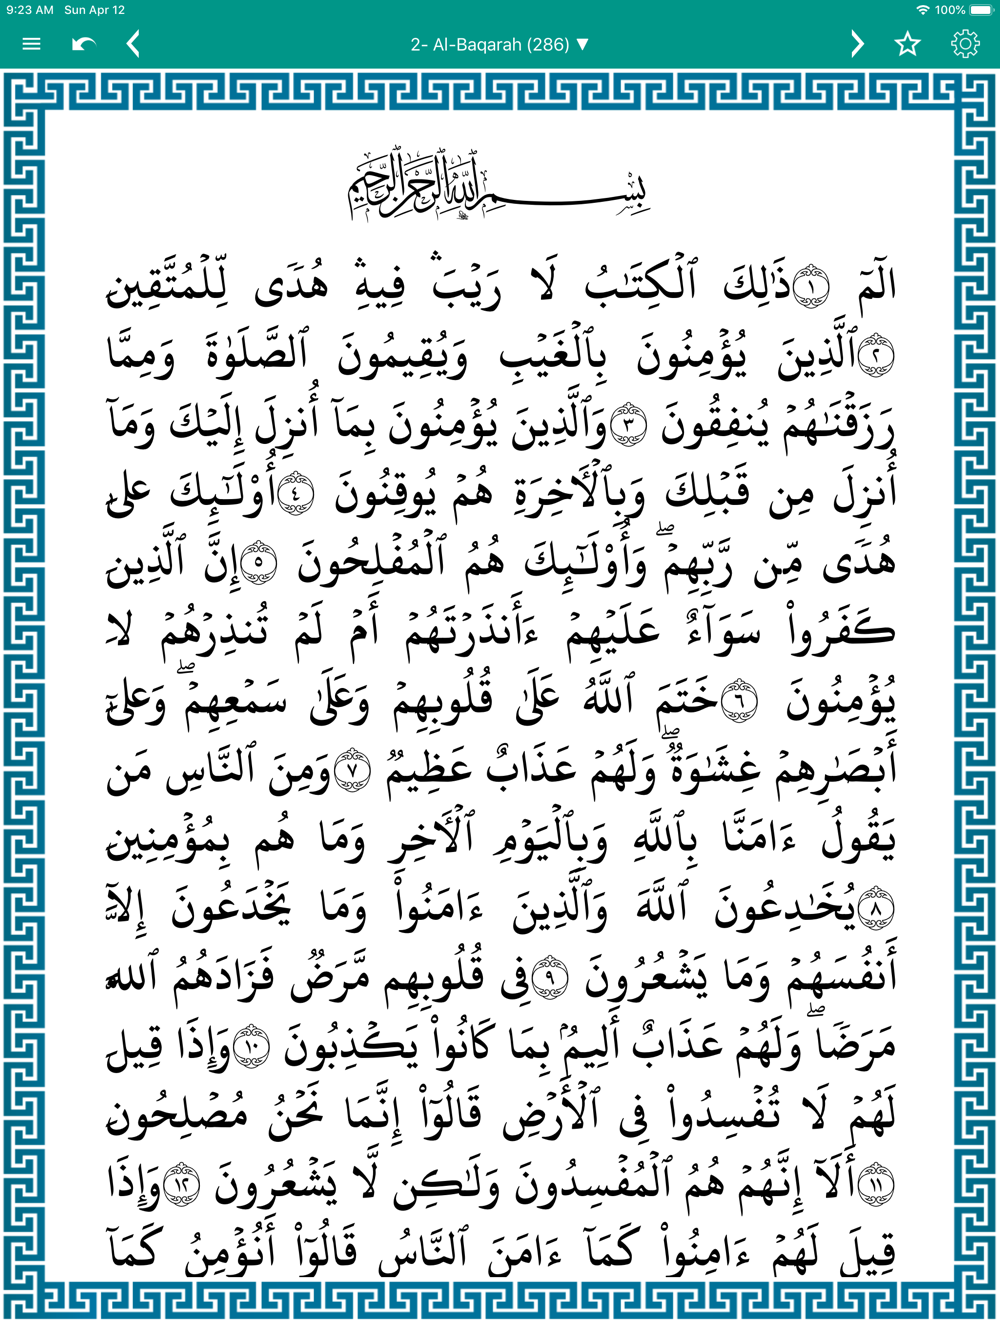 9:23 AM Sun Apr 12 100%
2- Al-Baqarah (286) ▼
بِسْمِ ٱللَّهِ ٱلرَّحْمَٰنِ ٱلرَّحِيمِ
الٓمٓ ١ ذَٰلِكَ ٱلْكِتَٰبُ لَا رَيْبَ ۛ فِيهِ ۛ هُدًى لِّلْمُتَّقِينَ
٢ ٱلَّذِينَ يُؤْمِنُونَ بِٱلْغَيْبِ وَيُقِيمُونَ ٱلصَّلَوٰةَ وَمِمَّا
رَزَقْنَٰهُمْ يُنفِقُونَ ٣ وَٱلَّذِينَ يُؤْمِنُونَ بِمَآ أُنزِلَ إِلَيْكَ وَمَآ
أُنزِلَ مِن قَبْلِكَ وَبِٱلْأَخِرَةِ هُمْ يُوقِنُونَ ٤ أُوْلَٰٓئِكَ عَلَىٰ
هُدًى مِّن رَّبِّهِمْ ۖ وَأُوْلَٰٓئِكَ هُمُ ٱلْمُفْلِحُونَ ٥ إِنَّ ٱلَّذِينَ
كَفَرُوا۟ سَوَآءٌ عَلَيْهِمْ ءَأَنذَرْتَهُمْ أَمْ لَمْ تُنذِرْهُمْ لَا
يُؤْمِنُونَ ٦ خَتَمَ ٱللَّهُ عَلَىٰ قُلُوبِهِمْ وَعَلَىٰ سَمْعِهِمْ ۖ وَعَلَىٰٓ
أَبْصَٰرِهِمْ غِشَٰوَةٌ ۖ وَلَهُمْ عَذَابٌ عَظِيمٌ ٧ وَمِنَ ٱلنَّاسِ مَن
يَقُولُ ءَامَنَّا بِٱللَّهِ وَبِٱلْيَوْمِ ٱلْأَخِرِ وَمَا هُم بِمُؤْمِنِينَ
٨ يُخَٰدِعُونَ ٱللَّهَ وَٱلَّذِينَ ءَامَنُوا۟ وَمَا يَخْدَعُونَ إِلَّآ
أَنفُسَهُمْ وَمَا يَشْعُرُونَ ٩ فِى قُلُوبِهِم مَّرَضٌ فَزَادَهُمُ ٱللَّهُ
مَرَضًا ۖ وَلَهُمْ عَذَابٌ أَلِيمٌۢ بِمَا كَانُوا۟ يَكْذِبُونَ ١٠ وَإِذَا قِيلَ
لَهُمْ لَا تُفْسِدُوا۟ فِى ٱلْأَرْضِ قَالُوٓا۟ إِنَّمَا نَحْنُ مُصْلِحُونَ
١١ أَلَآ إِنَّهُمْ هُمُ ٱلْمُفْسِدُونَ وَلَٰكِن لَّا يَشْعُرُونَ ١٢ وَإِذَا
قِيلَ لَهُمْ ءَامِنُوا۟ كَمَآ ءَامَنَ ٱلنَّاسُ قَالُوٓا۟ أَنُؤْمِنُ كَمَآ